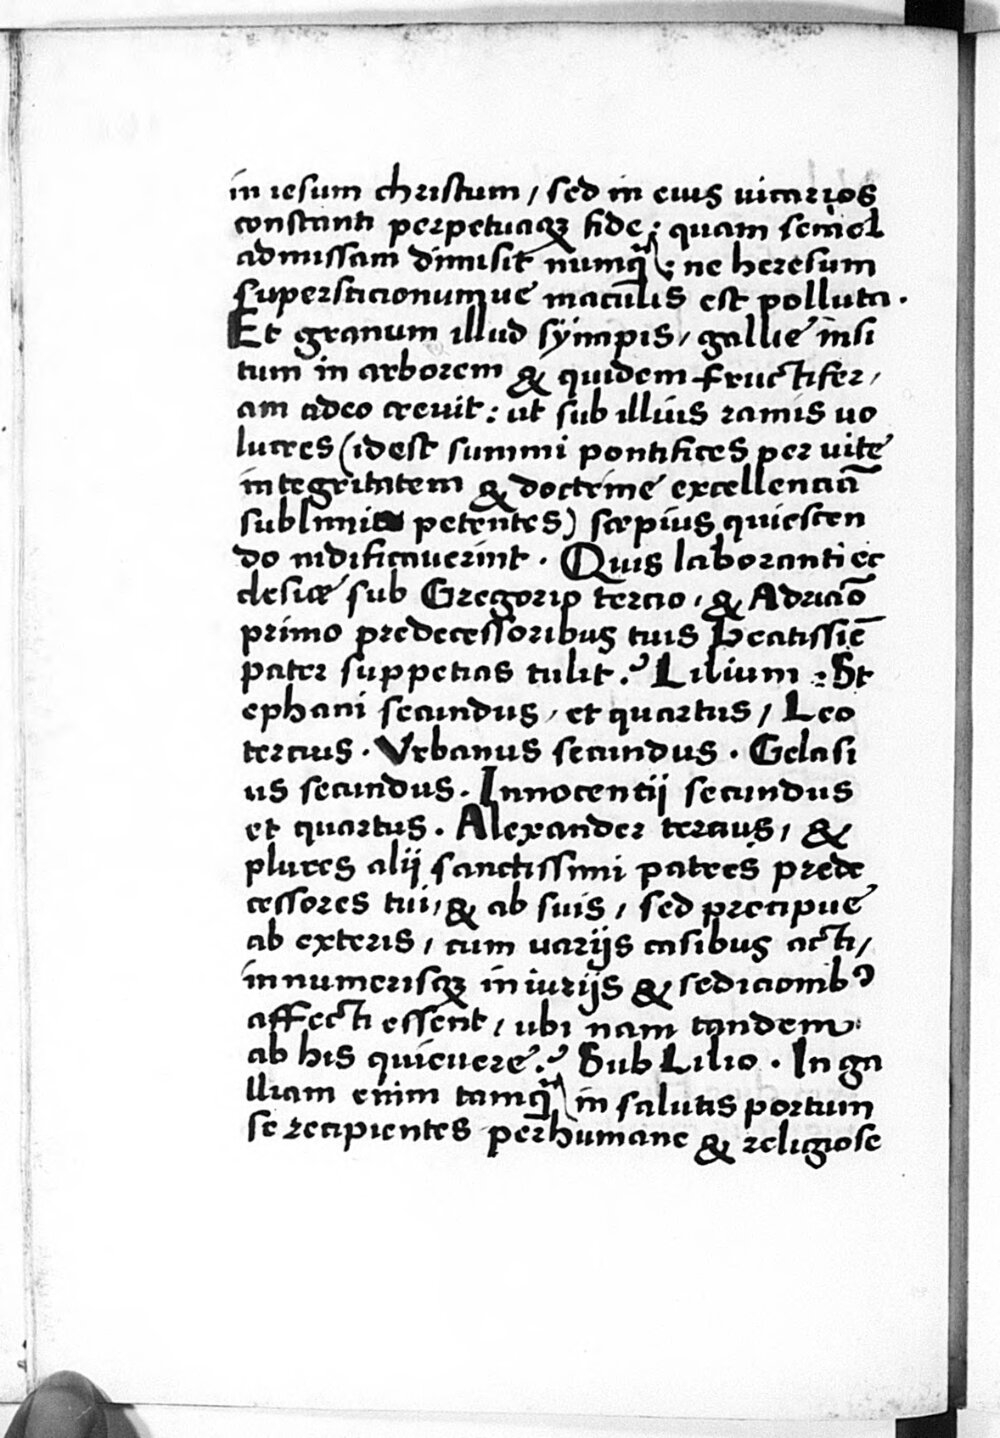 in iesum christum / sed in eius uicarios
constanti perpetuaqꝫ fide: quam semel
admissam dimisit numq̃ꝫ: ne heresum
supersticionumue maculis est polluta.
Et granum illud sÿnapis / gallie insi
tum in arborem & quidem fructifer /
am adeo creuit: ut sub illius ramis uo
lucres (idest summi pontifices per uite
integritatem & doctrine excellenciā
sublimia petentes) sæpius quiescen
do nidificauerint. Quis laboranti ec
clesiæ sub Gregorio tercio / & Adriāo
primo predecessoribus tuis Beatissiē
pater suppetias tulit? Lilium: St
ephani secundus / et quartus / Leo
tercius. Vrbanus secundus. Gelasi
us secundus. Innocentij secundus
et quartus. Alexander tercius / &
plures alij sanctissimi patres prede
cessores tui / & ab suis / sed precipue
ab exteris / cum uarijs casibus acti /
innumerisqꝫ iniurijs & sedicionibꝰ
affecti essent / ubi nam tandem
ab his quieuere? Sub Lilio. In ga
lliam enim tamq̃ in salutis portum
se recipientes perhumane & religiose